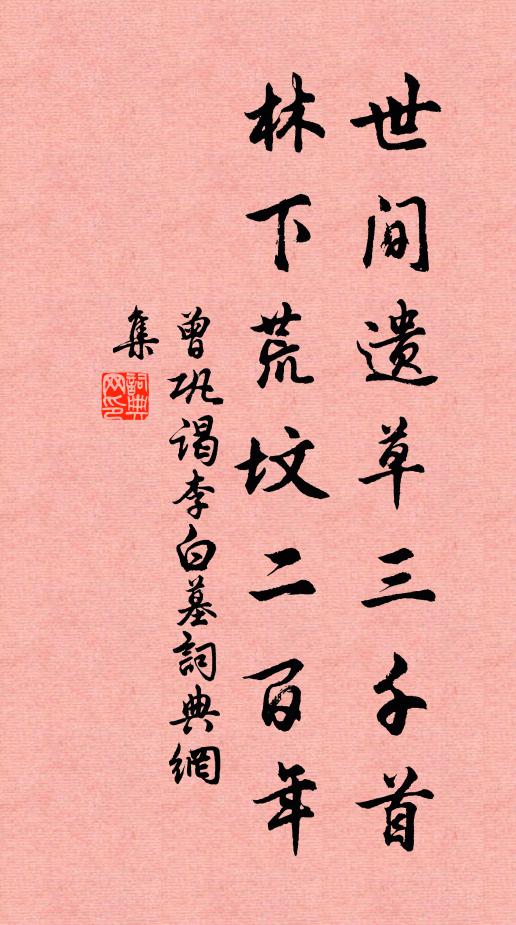 世间遗草三千首
林下荒坟二百年
曾巩谒李白墓詞典網
集
詞典网印